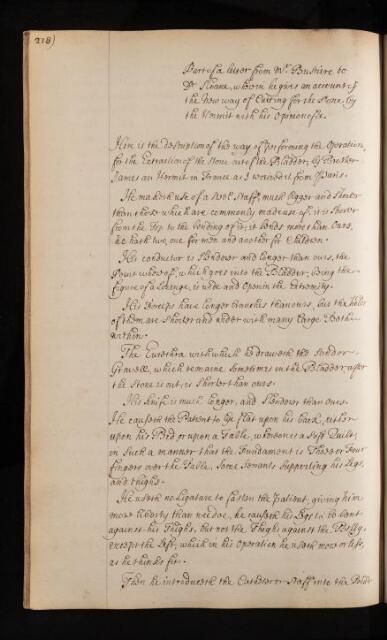 218)
Part of a letter from Mr. Bussiere to
Dr Sloane, wherein he gives an account of
the New way of Cutting for the Stone, by
the Hermit with his Opinion of it.
Here is the description of the way of performing the Operation,
for the Extraction of the Stone out of the Bladder, by Brother
James an Hermit in France as I received it from Paris.
He maketh use of a Steel Staff, much bigger and shorter
than those which are commonly made use of, it is shorter
from the Top to the bending of it, it bends more than Ours,
he hath two, one for men and another for Children.
His conductor is slenderer and longer than ours, the
point whereof, which goes into the Bladder, being the
figure of a Lozenge, is wide and Open in the Extremity.
His Forceps have longer branches than ours, but the
of them are shorter and wider with many large Teeth
within.
The with which he draweth the Stone or
Gravell, which remaine sometimes in the Bladder after
the Stone is out, is shorter than ours.
His knife is much longer, and slenderer than Ours.
He causeth the Patient to lye flat upon his back, either
upon his Bed or upon a Table, whereon is a Stiff Quilt,
in such a manner that the Fundament is Three or Four
fingers over the Table, Some Servants supporting his Legs,
and thighs.
He useth no Ligature to fasten the patient, giving him
more liberty than needs, he causeth his Legs to be bent
against his Thighs, but not the Thighs against the Belly,
except the left, which in his Operation he useth more or less,
as he thinks fit.
Then he introduceth the Catheter or Staff into the